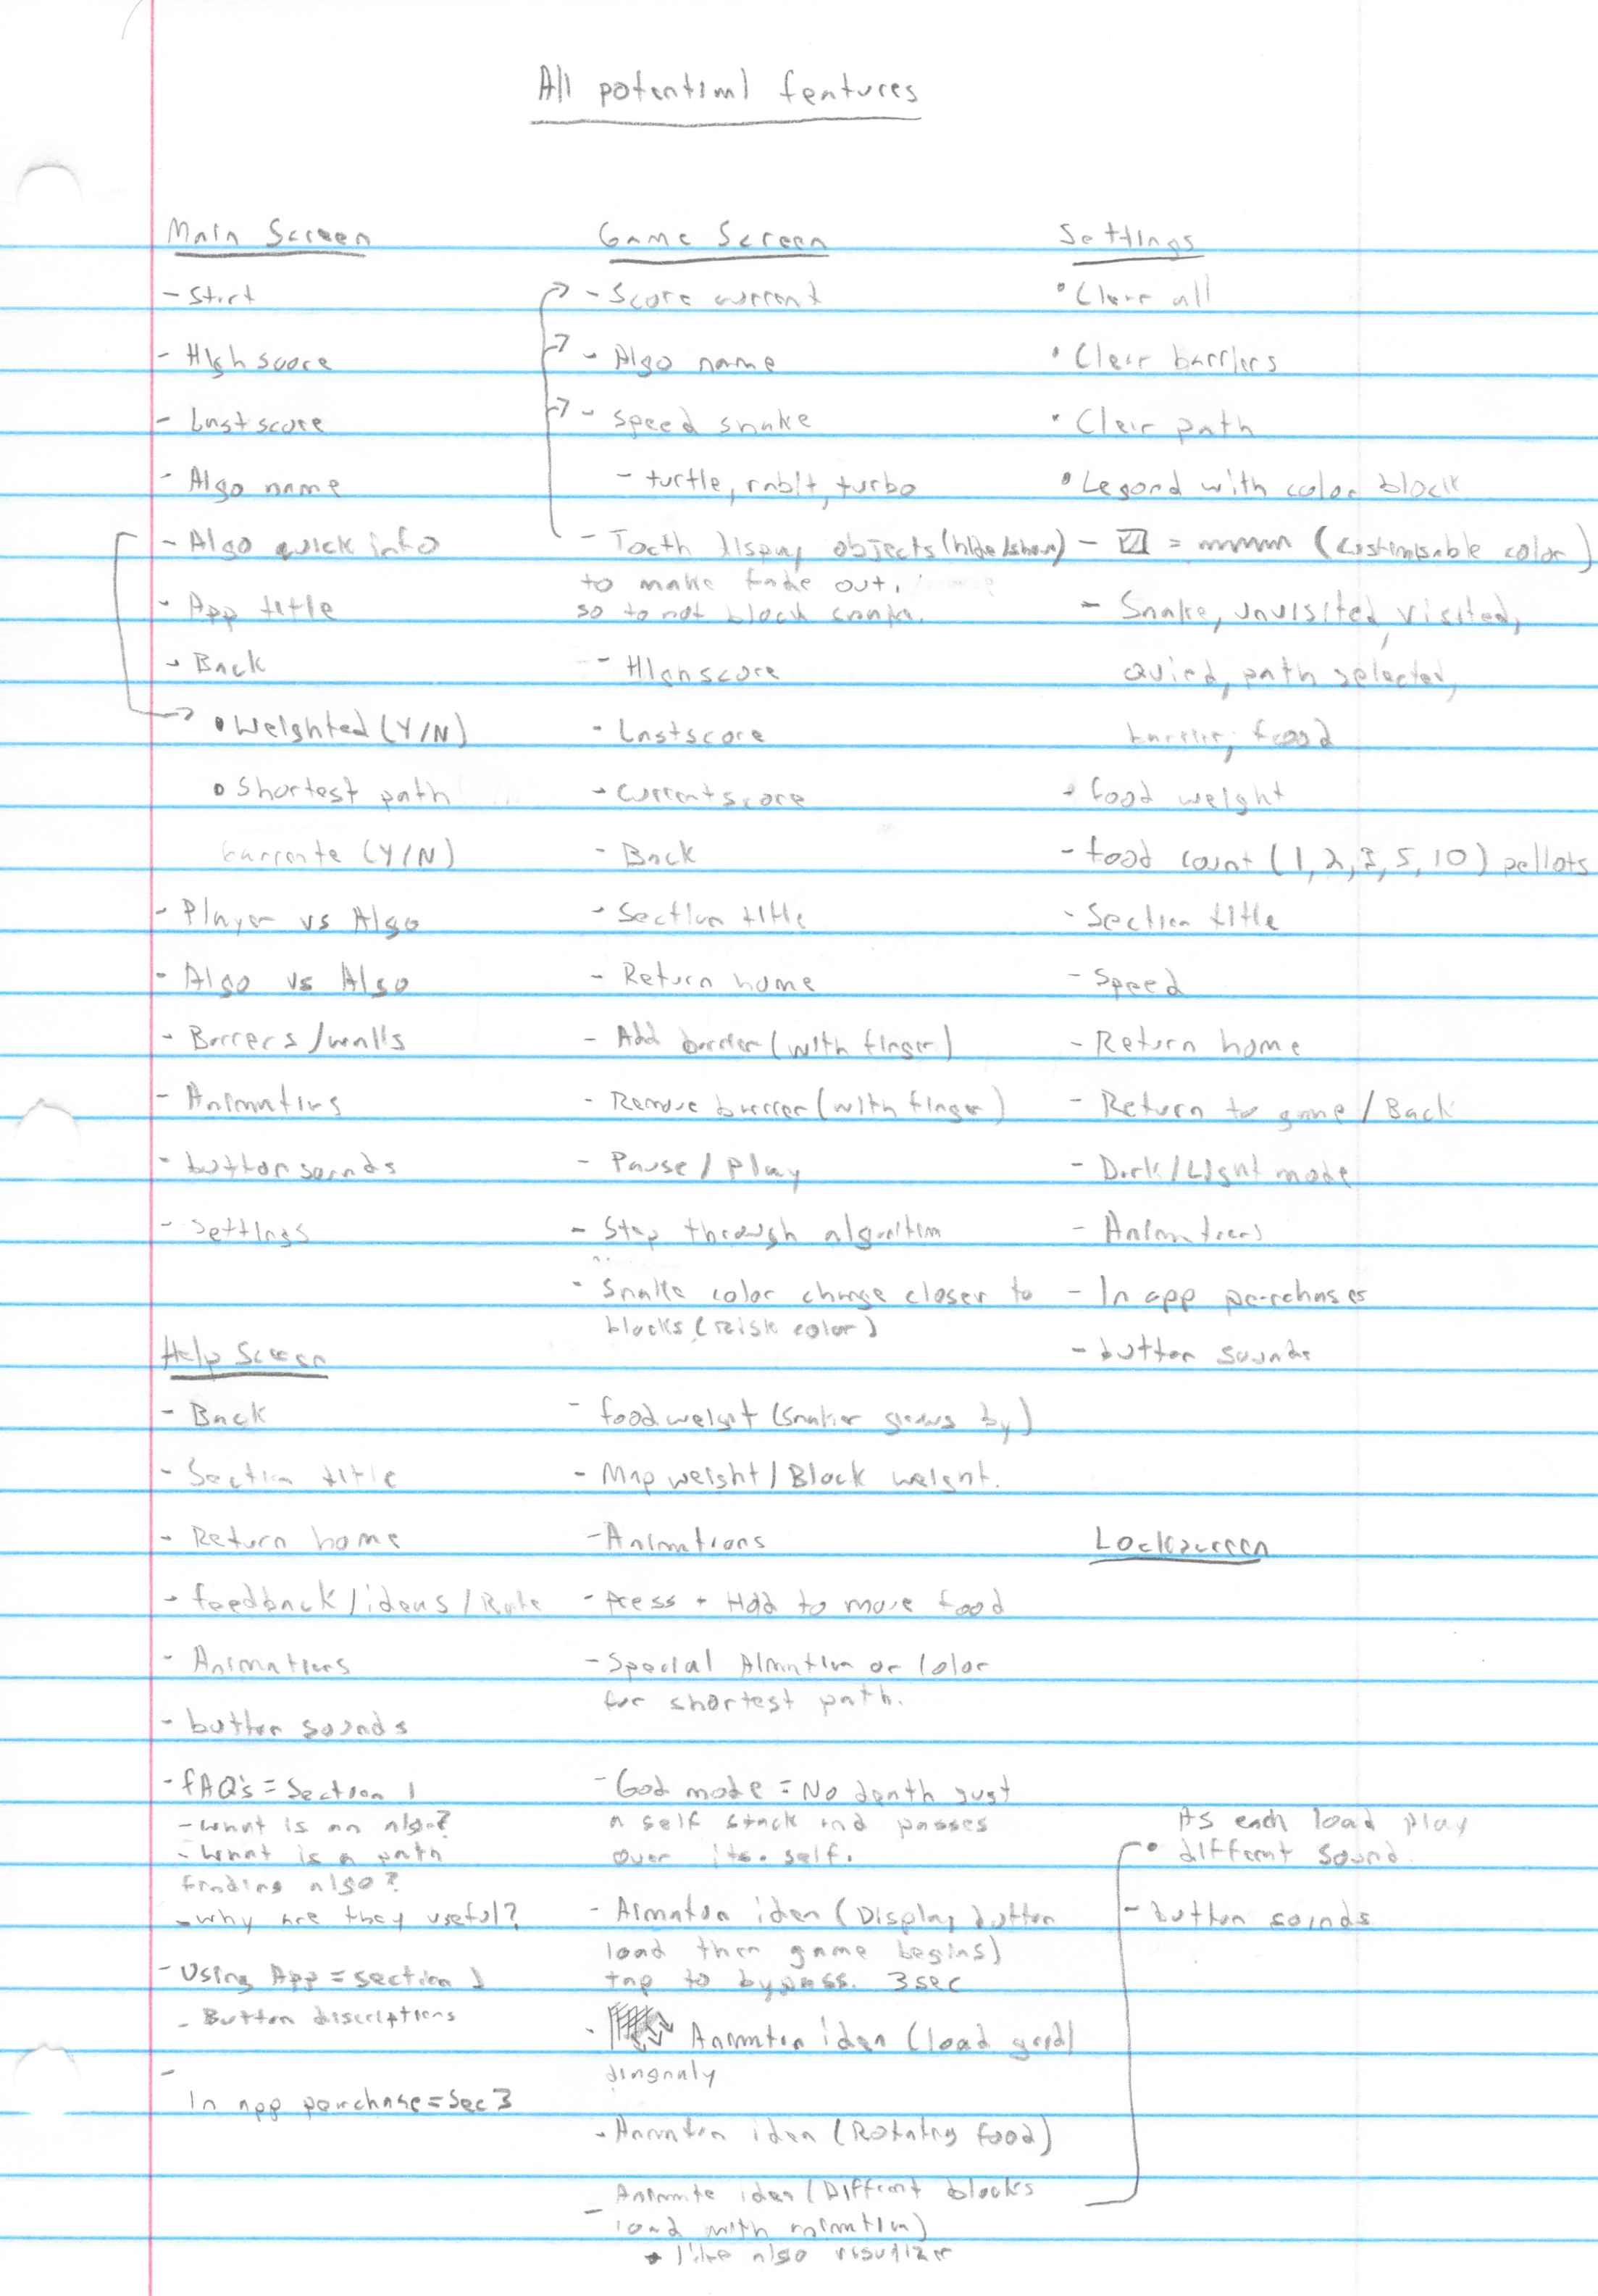 All potentiml features
Main Screen
- Stirt
- High score
- Last score
- Algo name
- Algo quick info
- App title
- Back
• Weighted (Y/N)
• Shortest path
(Y/N)
- Player vs Algo
- Algo vs Algo
- Barrers/walls
- Animations
- button sounds
- Settings
Help Screen
- Back
- Section title
- Return home
- feedback/ideas/Rate
- Animations
- button sounds
- FAQ's = Section 1
- what is an algo?
- what is a path
finding algo?
- why are they useful?
- Using App = section
- Button discriptions
-
In app perchase = Sec 3
Game Screen
- Score current
- Algo name
- speed snake
- turtle, rabit, turbo
- display objects (hide/show)
to make fade out.
so to not block snake.
- Highscore
- Lastscore
- currentscore
- Back
- Section title
- Return home
- Add barrier (with finger)
- Remove barrier (with finger)
- Pause / Play
- Step through algorithm
- Snake color change closer to
blocks (Risk color)
- food weight (snake grows by)
- Map weight / Block weight.
- Animations
- Press + Hold to move food
- Special Animation or Color
for shortest path.
- God mode = No death just
a self stack and passes
over its. self.
- Animaton idea (Display button
load then game begins)
tap to bypass. 3sec
- Animaton idea (load grid)
diagonaly
- Animaton idea (Rotating food)
- Animate idea (Diffrent blocks
load with animation)
like algo visulizer
Settings
• Clear all
• Clear barriers
• Clear path
• Legend with color block
- = (customisable color)
- Snake, unvisited, visited,
path selected,
barrier, food
• food weight
- food count (1, 2, 3, 5, 10) pellets
- Section title
- Speed
- Return home
- Return to game / Back
- Dark/Light mode
- Animations
- In app perchases
- button sounds
Lockscreen
As each load play
• diffrent sound.
- button sounds